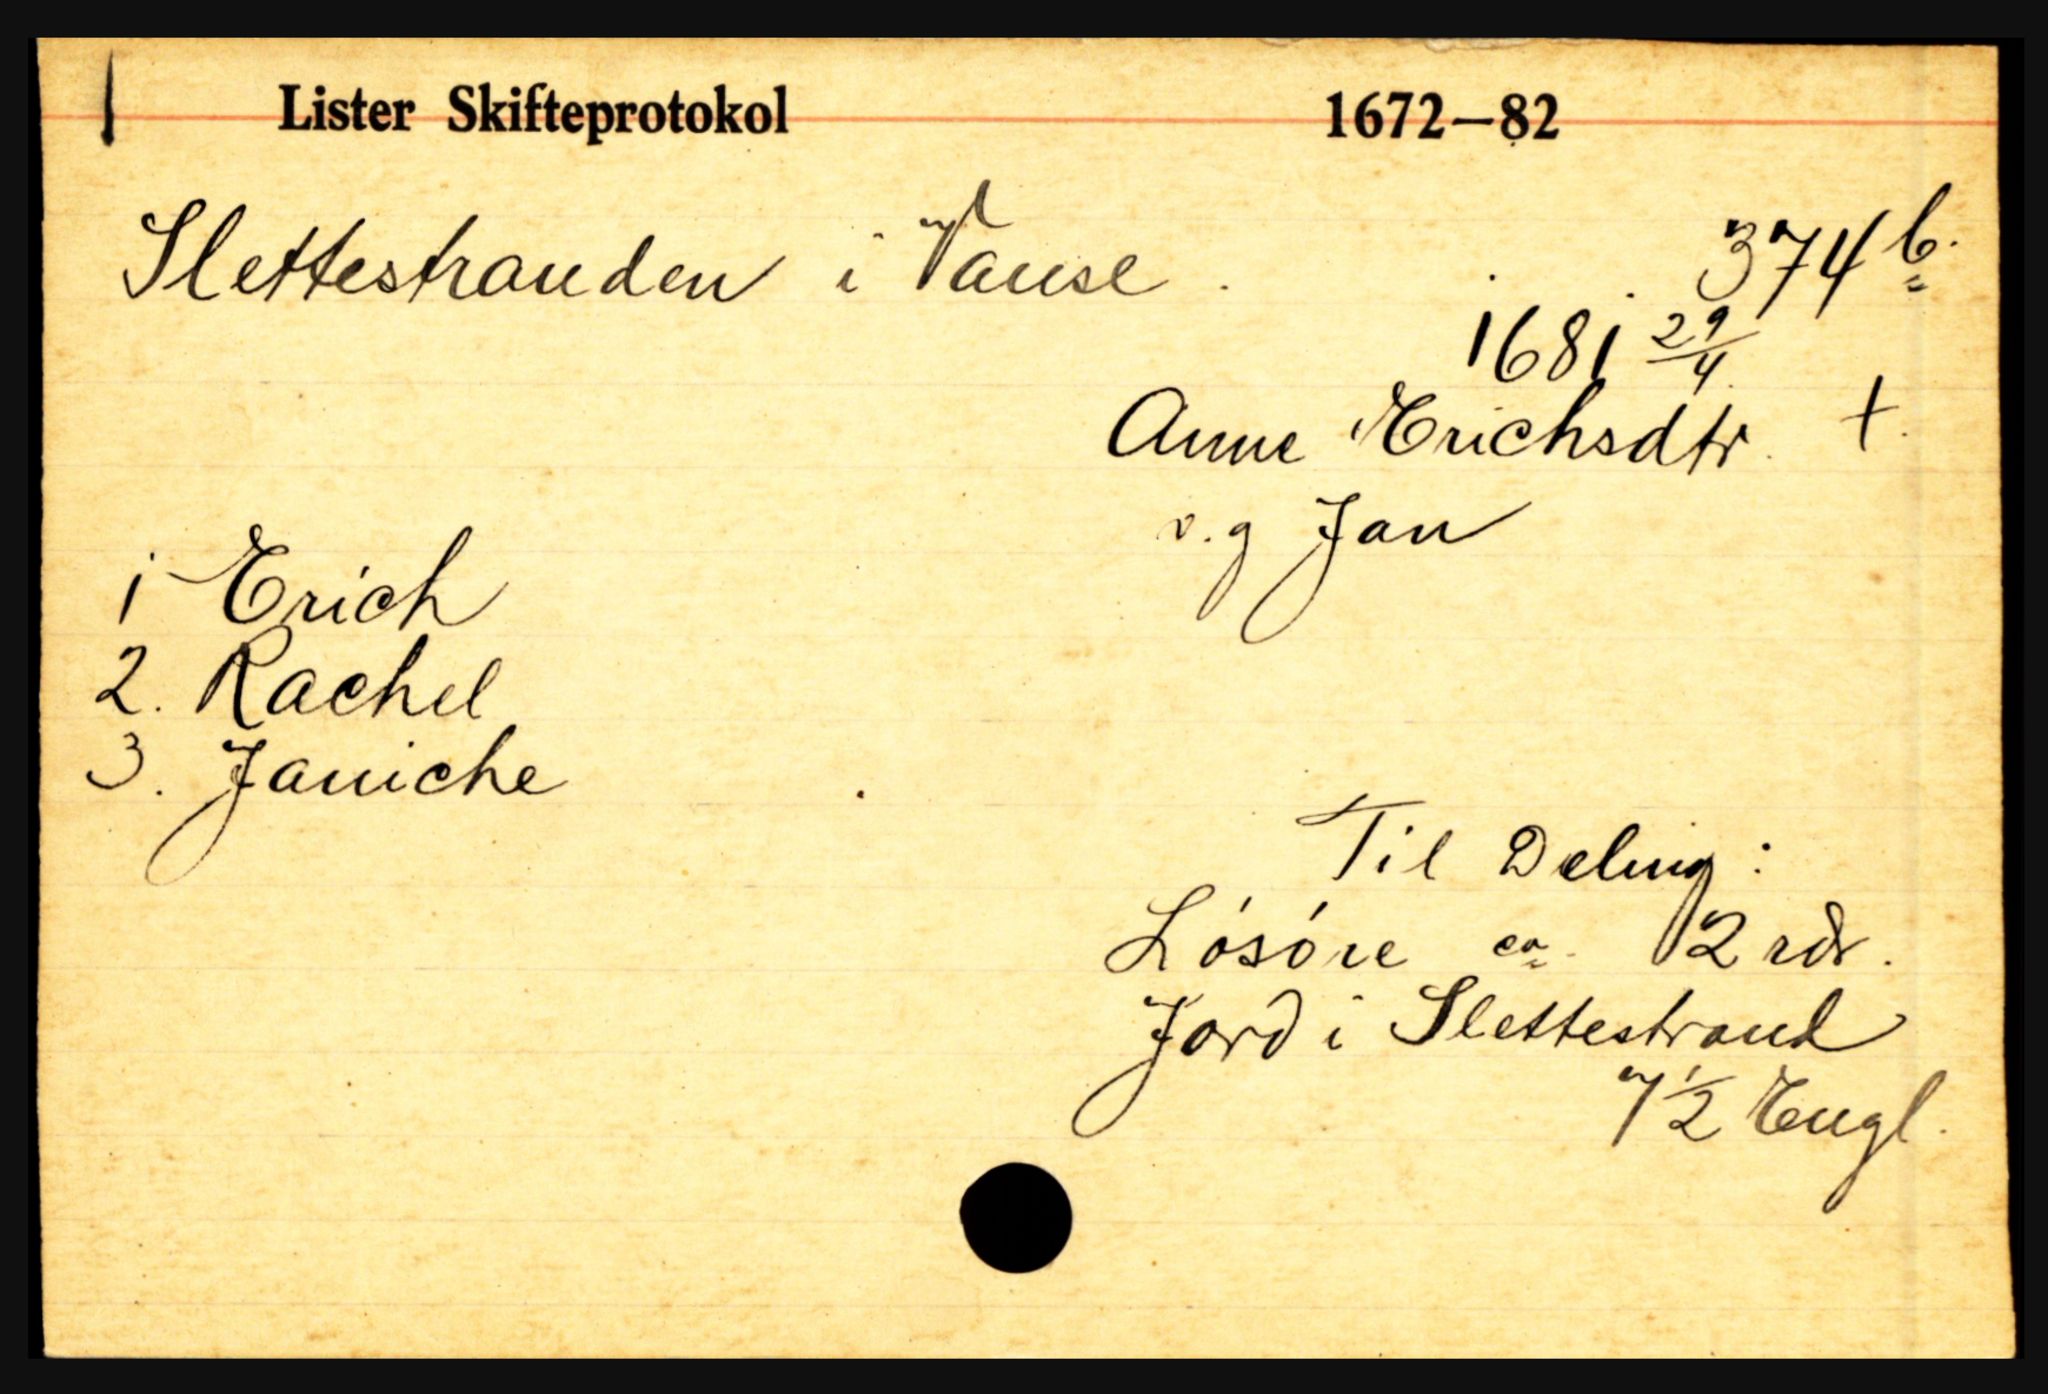 1
Lister Skifteprotokol 1672—82
Slettestranden i Vanse.
374 b.
1681 29/4
Anne Erichsdtr. †.
v. g Jan
1 Erich
2. Rachel
3. Janiche
Til Deling:
Lósóre ca. 12 rdr.
Jord i Slettestrand
7 1/2 Engl.